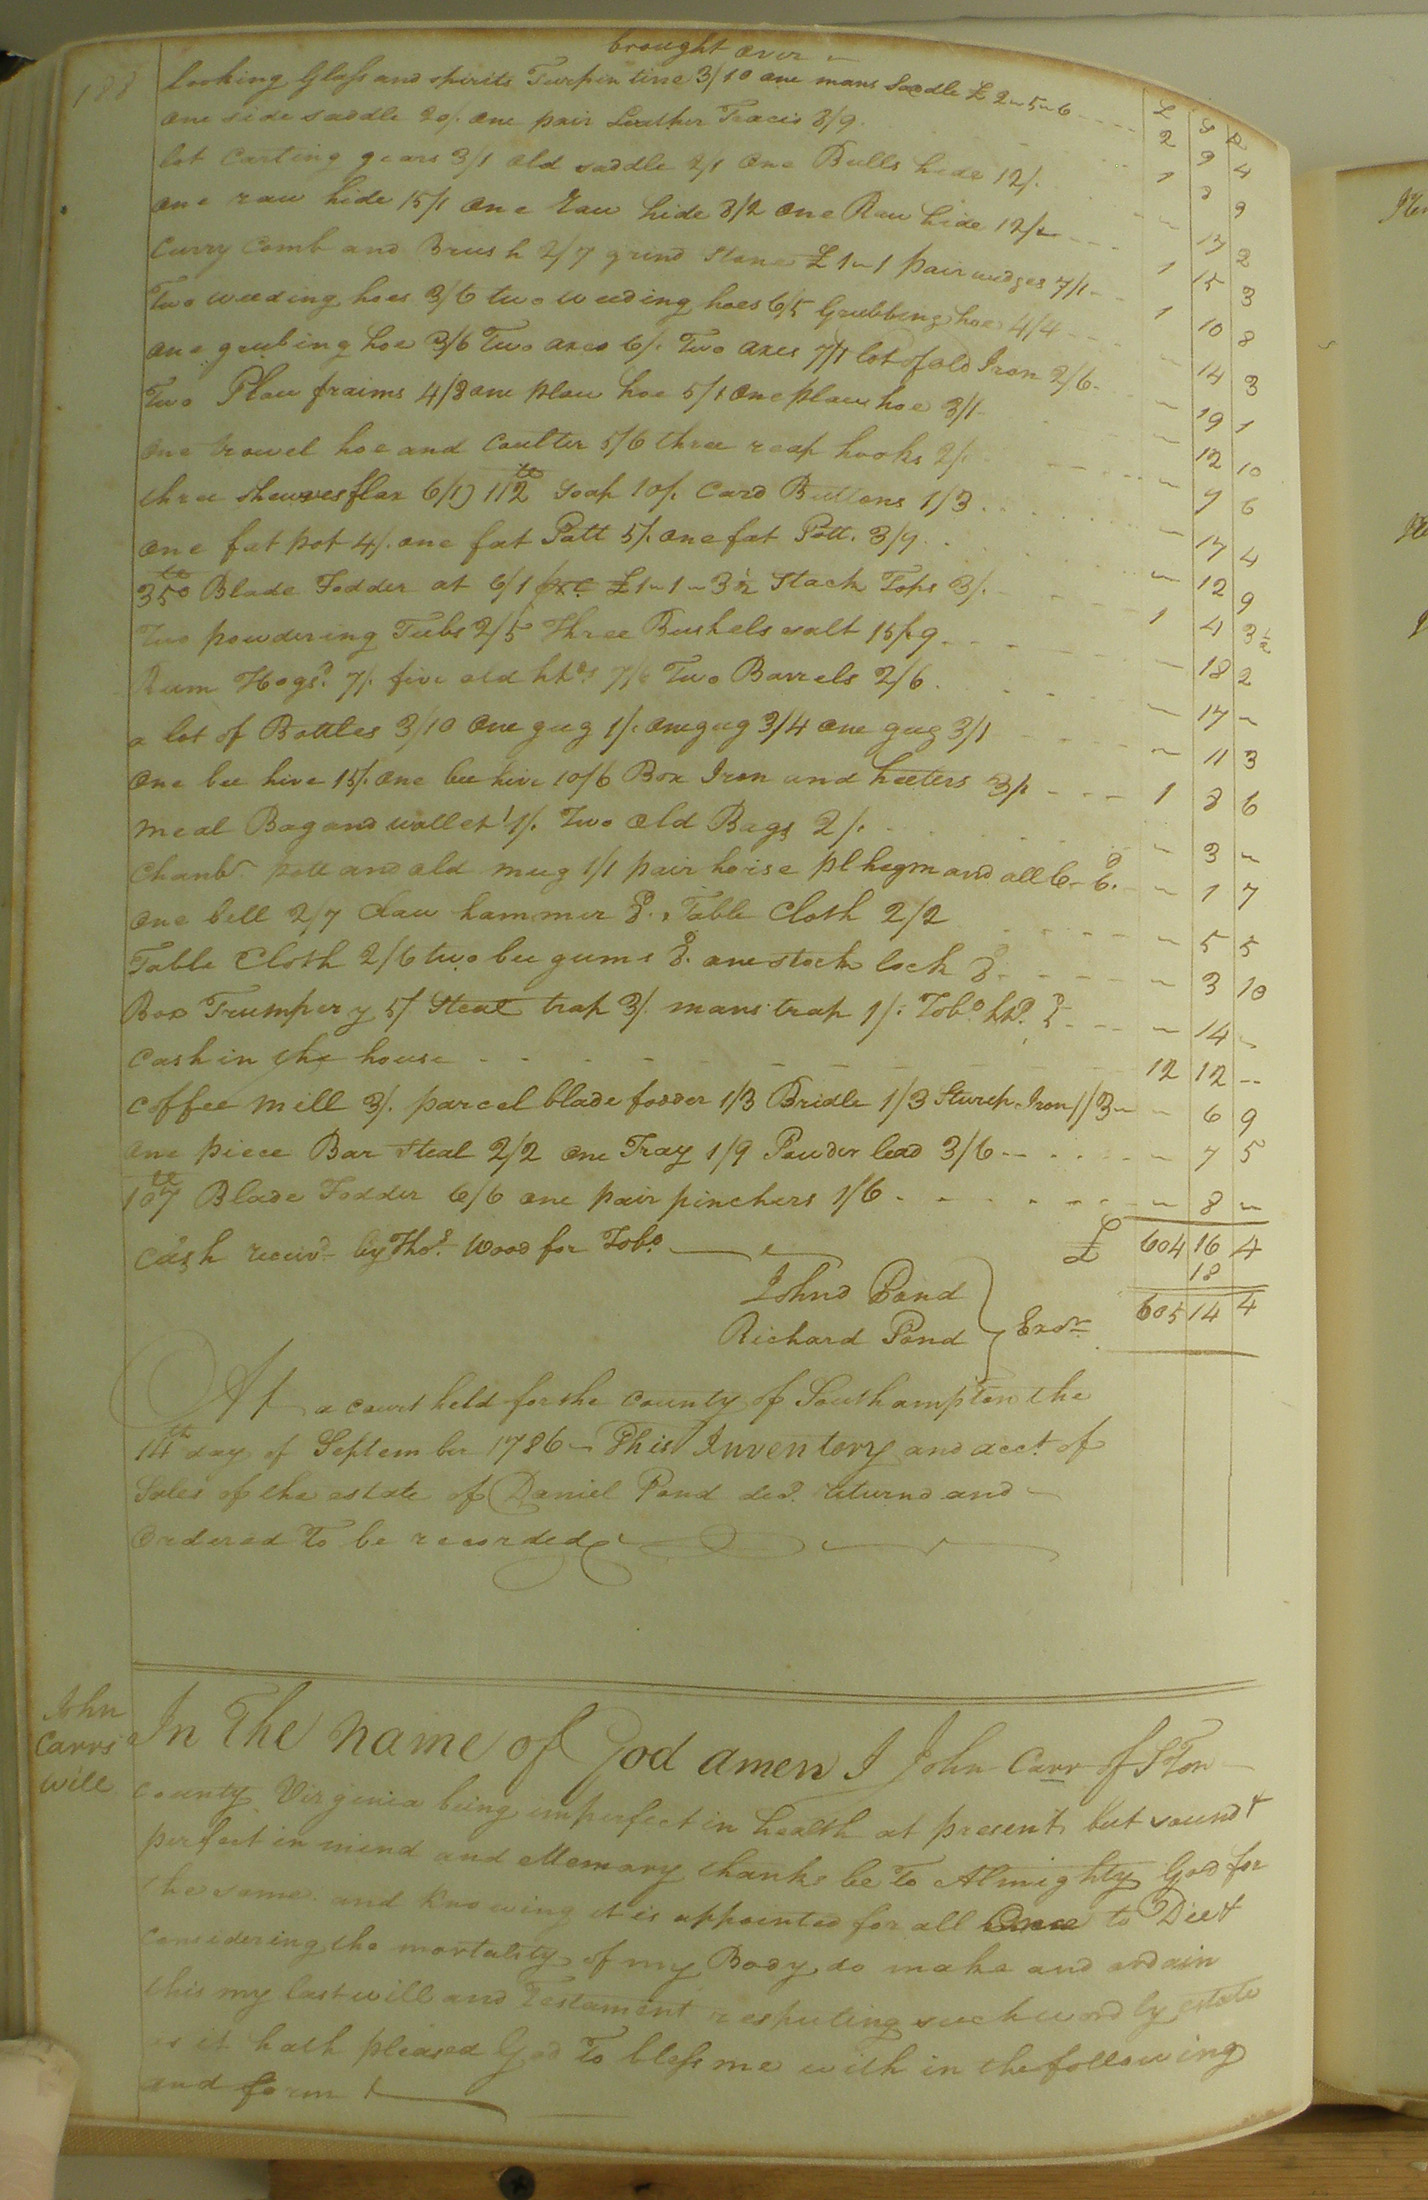 188
brought over
looking Glass and spirits Turpintine 3/10 one mans Saddle £ 2~5~6 £ 2 S 9 D 4
one side saddle 20/. one pair Leather Traces 8/9. 1 8 9
lot Carting gears 3/1 old saddle 2/1 One Bulls hide 12/. ~ 17 2
one raw hide 15/1 one Raw hide 8/2 one Raw hide 12/ 1 15 3
Curry Comb and Brush 2/7 grind stone £ 1~1 pair wedges 7/1 1 10 8
Two weeding hoes 3/6 two weeding hoes 6/5 Grubbing hoe 4/4 ~ 14 3
one grubing hoe 3/6 Two axes 6/. Two axes 7/1 lot of old Iron 2/6 ~ 19 1
Two Plow fraims 4/8 one plow hoe 5/1 One plow hoe 3/1 ~ 12 10
One trowel hoe and Coulter 5/6 three reap hooks 2/. ~ 7 6
three sheaves flax 6/1 112 Soap 10/. Card Buttons 1/3 ~ 17 4
One fat pot 4/. one fat Pott 5/. one fat Pott. 3/9 ~ 12 9
350 Blade Fodder at 6/1 £ 1~1~3½ Stack Tops 3/. 1 4 3½
Two powdering Tubs 2/5 Three Bushels salt 15/9 ~ 18 2
Rum Hogsd. 7/. five old hhds 7/6 Two Barrels 2/6 ~ 17 ~
a lot of Bottles 3/10 One gug 1/. one gug 3/4 one gug 3/1 ~ 11 3
One bee hive 15/. one bee hive 10/6 Box Iron and heeters 3/. 1 8 6
Meal Bag and wallet 1/. Two old Bags 2/. ~ 3 ~
Chanbr. pott and old mug 1/1 pair horse phlegm and all 6 ~ 1 7
One bell 2/7 claw hammer 8d. Table Cloth 2/2 ~ 5 5
Table Cloth 2/6 two bee gums 8d. one stock lock 8d ~ 3 10
Box Trumpery 5/ Steal trap 3/. mans trap 1/. Tobo. hhd. ~ 14 ~
Cash in the house 12 12 ~
Coffee Mill 3/. parcel blade fodder 1/3 Bridle 1/3 Sturep Iron 1/3 ~ 6 9
One piece Bar Steal 2/2 one Tray 1/9 Powder lead 3/6 ~ 7 5
107 Blade Fodder 6/6 one pair pinchers 1/6 ~ 8 ~
£ 604 16 4
Cash receivd. by Thos. Wood for Tobo. 18
605 14 4
Johnd Pond
Richard Pond } Exors
At a court held for the County of Southampton the
14th day of September 1786 This Inventory and acct. of
Sales of the estate of Daniel Pond decd. returnd and
Ordered To be recorded
John
Carrs
Will
In The name of God amen I John Carr of S Ton
County Virginia being imperfect in health at present but sound &
perfect in mind and Memory thanks be To Almighty God for
the same. and knowing it is appointed for all Once to Die &
Considering the mortality of my Body do make and ordain
this my last will and Testament respecting such wordly estate
as it hath pleased God To bless me with in the following
and form